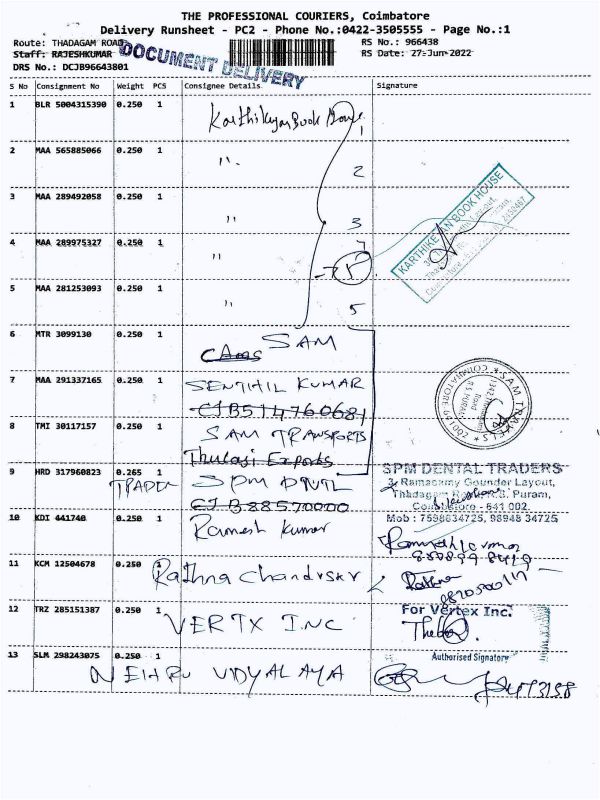 THE PROFESSIONAL COURIERS, Coimbatore
Delivery Runsheet - PC2 - Phone No.:0422-3505555 - Page No.:1
Route: THADAGAM ROAD
RS No.: 966438
Staff: RAJESHKUMAR
RS Date: 27-Jun-2022
DRS No.: DCJB96643801
DOCUMENT DELIVERY
S No Consignment No Weight PCS Consignee Details Signature
1 BLR 5004315390 0.250 1 Karthikeyan Book House 1
2 MAA 565885066 0.250 1 " 2
3 MAA 289492058 0.250 1 " 3
KARTHIKEYAN BOOK HOUSE
4 MAA 289975327 0.250 1 "
5 MAA 281253093 0.250 1 " 5
6 MTR 3099130 0.250 1 SAM
7 MAA 291337165 0.250 1 SENTHIL KUMAR
CJB514760681
* SAM TRAVELS * COIMBATORE
8 TMI 30117157 0.250 1 SAM TRANSPORTS
Thulasi Exports
9 HRD 317960823 0.265 1 SPM DNTL
TRADER
CJB88570000
SPM DENTAL TRADERS
3, Ramasamy Gounder Layout,
Thadagam Road, R.S. Puram,
Coimbatore - 641 002.
Mob : 7598634725, 98948 34725
10 KDI 441740 0.250 1 Ramesh Kumar
11 KCM 12504678 0.250 1 Rathna Chandrskr
Rathna
12 TRZ 285151387 0.250 1 VERTX INC
For Vertex Inc.
Authorised Signatory
13 SLM 298243075 0.250 1
NEHRU VIDYALAYA